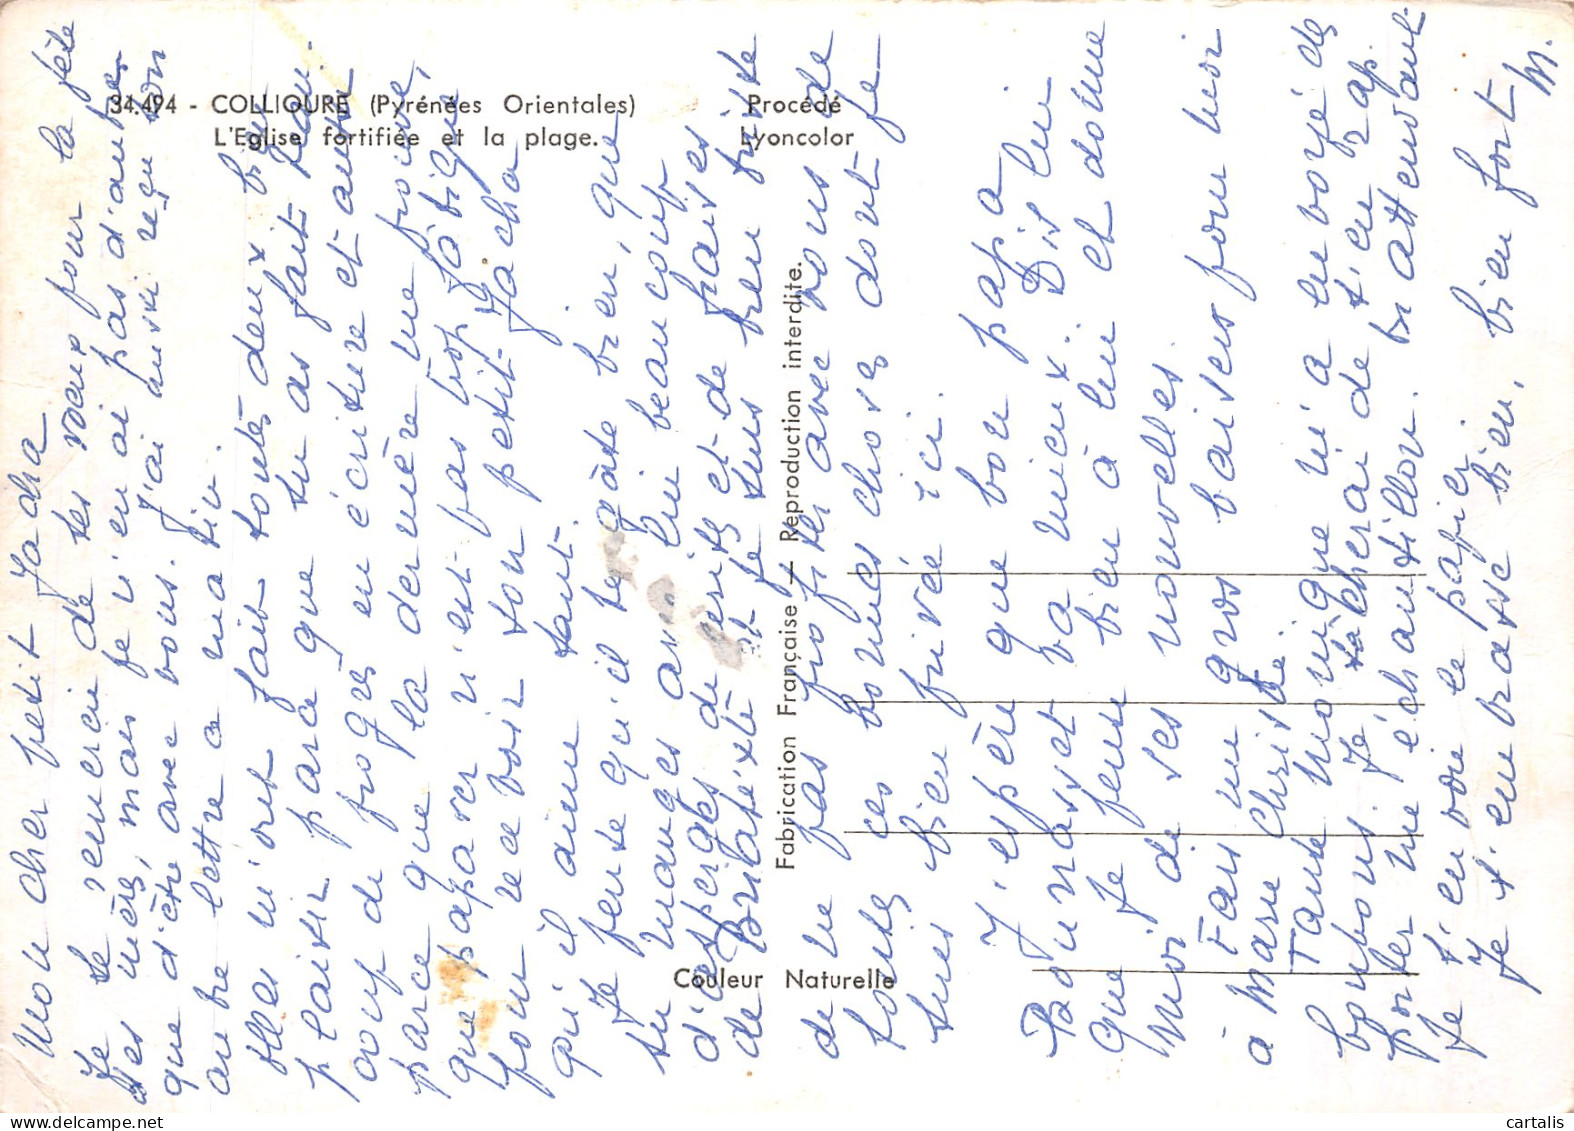 34.494 - COLLIOURE (Pyrénées Orientales)
L'Eglise fortifiée et la plage.
Procédé
Lyoncolor
Fabrication Française — Reproduction interdite.
Couleur Naturelle
Mon cher petit Jacha
Je te remercie de tes vœux pour la fête
des mères, mais je n'en ai pas d'autre
que d'être avec vous. J'ai aussi reçu ton
autre lettre ce matin.
Elles m'ont fait toutes deux bien
plaisir parce que tu as fait
de progrès en écriture et aussi
parce que la dernière me prouve,
que papa n'est pas trop fatigué
pour recevoir son petit Jacha
qu'il aime tant.
Je pense qu'il te gâte bien, que
tu manges avec lui beaucoup
d'asperges et de fraises
de et je suis bien triste
de ne pas profiter avec vous de
toutes ces bonnes choses dont je
suis bien privée ici.
J'espère que bon papa
Bournasset va mieux. Dis lui
que je pense bien à lui et donne
moi de ses nouvelles.
Fais un gros baiser pour moi
à Marie Christe
Tante Monique m'a envoyé des
bonbons. Je tâcherai de t'en rap-
porter un échantillon. En attendant
je t'envoie le papier.
Je t'embrasse bien, bien fort
M.
cartalis